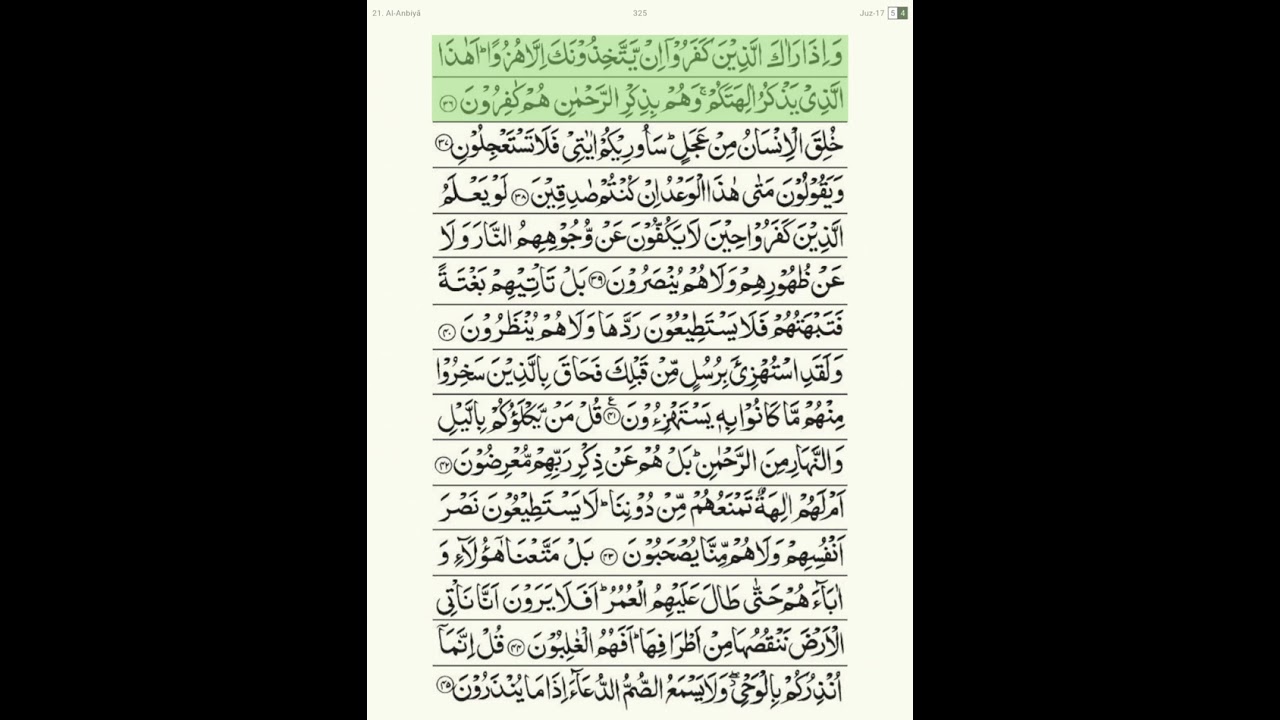 21. Al-Anbiyā 325 Juz-17 5 4
وَاِذَا رَاٰكَ الَّذِيْنَ كَفَرُوْۤا اِنْ يَّتَّخِذُوْنَكَ اِلَّا هُزُوًا ؕ اَهٰذَا
الَّذِىْ يَذْكُرُ اٰلِهَتَكُمْ ۚ وَهُمْ بِذِكْرِ الرَّحْمٰنِ هُمْ كٰفِرُوْنَ ۳۶
خُلِقَ الْاِنْسَانُ مِنْ عَجَلٍ ؕ سَاُورِيْكُمْ اٰيٰتِىْ فَلَا تَسْتَعْجِلُوْنِ ۳۷
وَيَقُوْلُوْنَ مَتٰى هٰذَا الْوَعْدُ اِنْ كُنْتُمْ صٰدِقِيْنَ ۳۸ لَوْ يَعْلَمُ
الَّذِيْنَ كَفَرُوْا حِيْنَ لَا يَكُفُّوْنَ عَنْ وُّجُوْهِهِمُ النَّارَ وَلَا
عَنْ ظُهُوْرِهِمْ وَلَا هُمْ يُنْصَرُوْنَ ۳۹ بَلْ تَاْتِيْهِمْ بَغْتَةً
فَتَبْهَتُهُمْ فَلَا يَسْتَطِيْعُوْنَ رَدَّهَا وَلَا هُمْ يُنْظَرُوْنَ ۴۰
وَلَقَدِ اسْتُهْزِئَ بِرُسُلٍ مِّنْ قَبْلِكَ فَحَاقَ بِالَّذِيْنَ سَخِرُوْا
مِنْهُمْ مَّا كَانُوْا بِهٖ يَسْتَهْزِءُوْنَ ۴۱ ع قُلْ مَنْ يَّكْلَؤُكُمْ بِالَّيْلِ
وَالنَّهَارِ مِنَ الرَّحْمٰنِ ؕ بَلْ هُمْ عَنْ ذِكْرِ رَبِّهِمْ مُّعْرِضُوْنَ ۴۲
اَمْ لَهُمْ اٰلِهَةٌ تَمْنَعُهُمْ مِّنْ دُوْنِنَا ؕ لَا يَسْتَطِيْعُوْنَ نَصْرَ
اَنْفُسِهِمْ وَلَا هُمْ مِّنَّا يُصْحَبُوْنَ ۴۳ بَلْ مَتَّعْنَا هٰۤؤُلَآءِ وَ
اٰبَآءَهُمْ حَتّٰى طَالَ عَلَيْهِمُ الْعُمُرُ ؕ اَفَلَا يَرَوْنَ اَنَّا نَاْتِى
الْاَرْضَ نَنْقُصُهَا مِنْ اَطْرَافِهَا ؕ اَفَهُمُ الْغٰلِبُوْنَ ۴۴ قُلْ اِنَّمَاۤ
اُنْذِرُكُمْ بِالْوَحْىِ ۖ وَلَا يَسْمَعُ الصُّمُّ الدُّعَآءَ اِذَا مَا يُنْذَرُوْنَ ۴۵